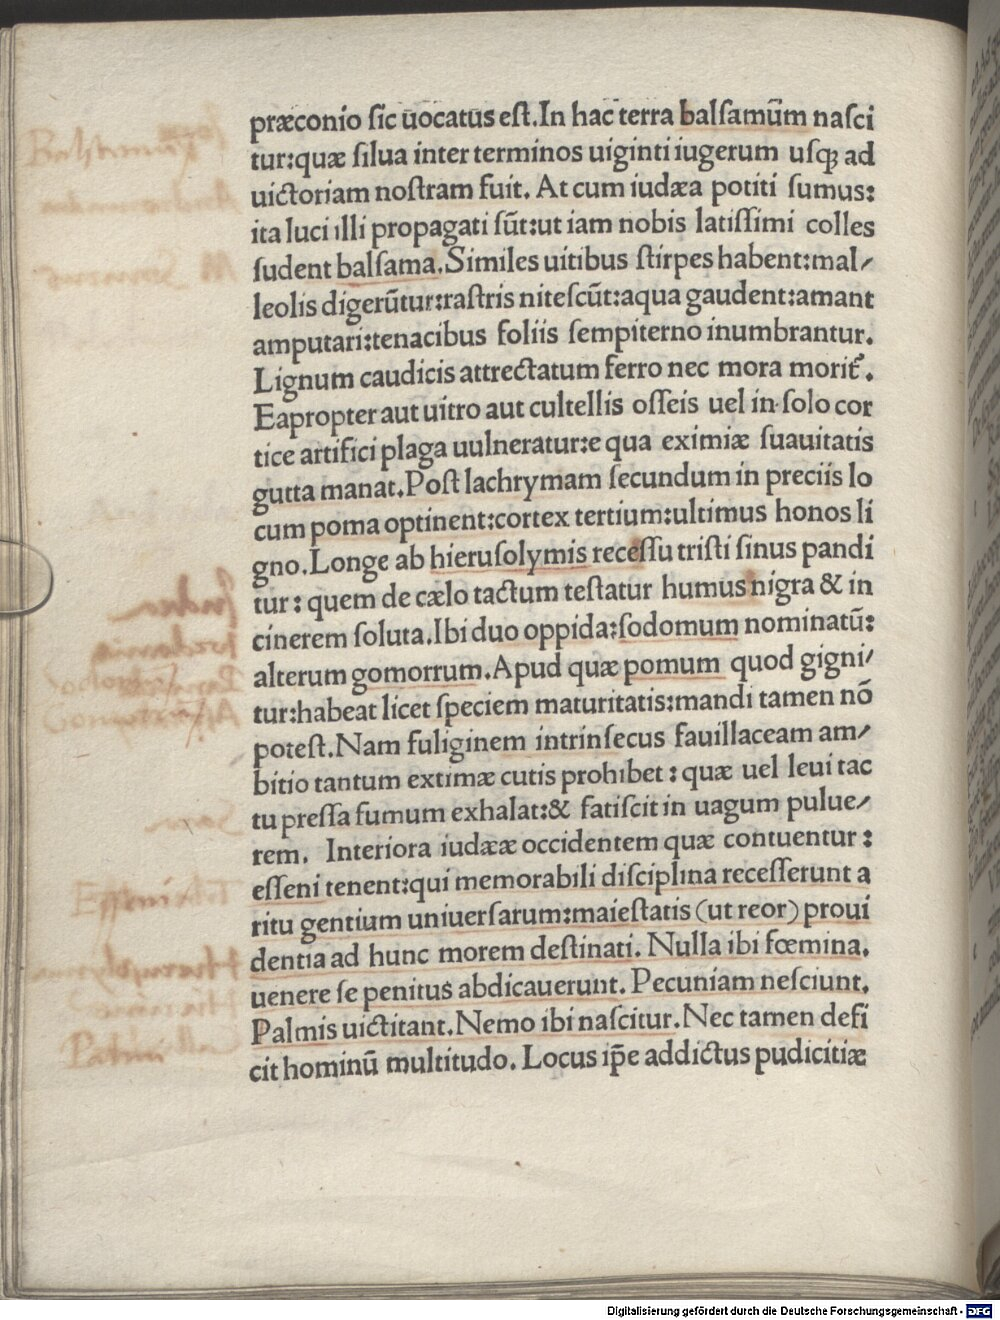 præconio sic uocatus est.In hac terra balsamum nasci
tur:quæ silua inter terminos uiginti iugerum usqꝫ ad
uictoriam nostram fuit. At cum iudæa potiti sumus:
ita luci illi propagati sūt:ut iam nobis latissimi colles
sudent balsama.Similes uitibus stirpes habent:mal⸗
leolis digerūtur:rastris nitescūt:aqua gaudent:amant
amputari:tenacibus foliis sempiterno inumbrantur.
Lignum caudicis attrectatum ferro nec mora morit᷑.
Eapropter aut uitro aut cultellis osseis uel in solo cor
tice artifici plaga uulneratur:e qua eximiæ suauitatis
gutta manat.Post lachrymam secundum in preciis lo
cum poma optinent:cortex tertium:ultimus honos li
gno.Longe ab hierusolymis recessu tristi sinus pandi
tur: quem de cælo tactum testatur humus nigra & in
cinerem soluta.Ibi duo oppida:sodomum nominatū:
alterum gomorrum.Apud quæ pomum quod gigni⸗
tur:habeat licet speciem maturitatis:mandi tamen nō
potest.Nam fuliginem intrinsecus fauillaceam am⸗
bitio tantum extimæ cutis prohibet: quæ uel leui tac
tu pressa fumum exhalat:& fatiscit in uagum pulue⸗
rem. Interiora iudææ occidentem quæ contuentur:
esseni tenent:qui memorabili disciplina recesserunt a
ritu gentium uniuersarum:maiestatis (ut reor) proui
dentia ad hunc morem destinati. Nulla ibi fœmina.
uenere se penitus abdicauerunt. Pecuniam nesciunt.
Palmis uictitant.Nemo ibi nascitur.Nec tamen defi
cit hominū multitudo. Locus ip̄e addictus pudicitiæ
Digitalisierung gefördert durch die Deutsche Forschungsgemeinschaft - DFG